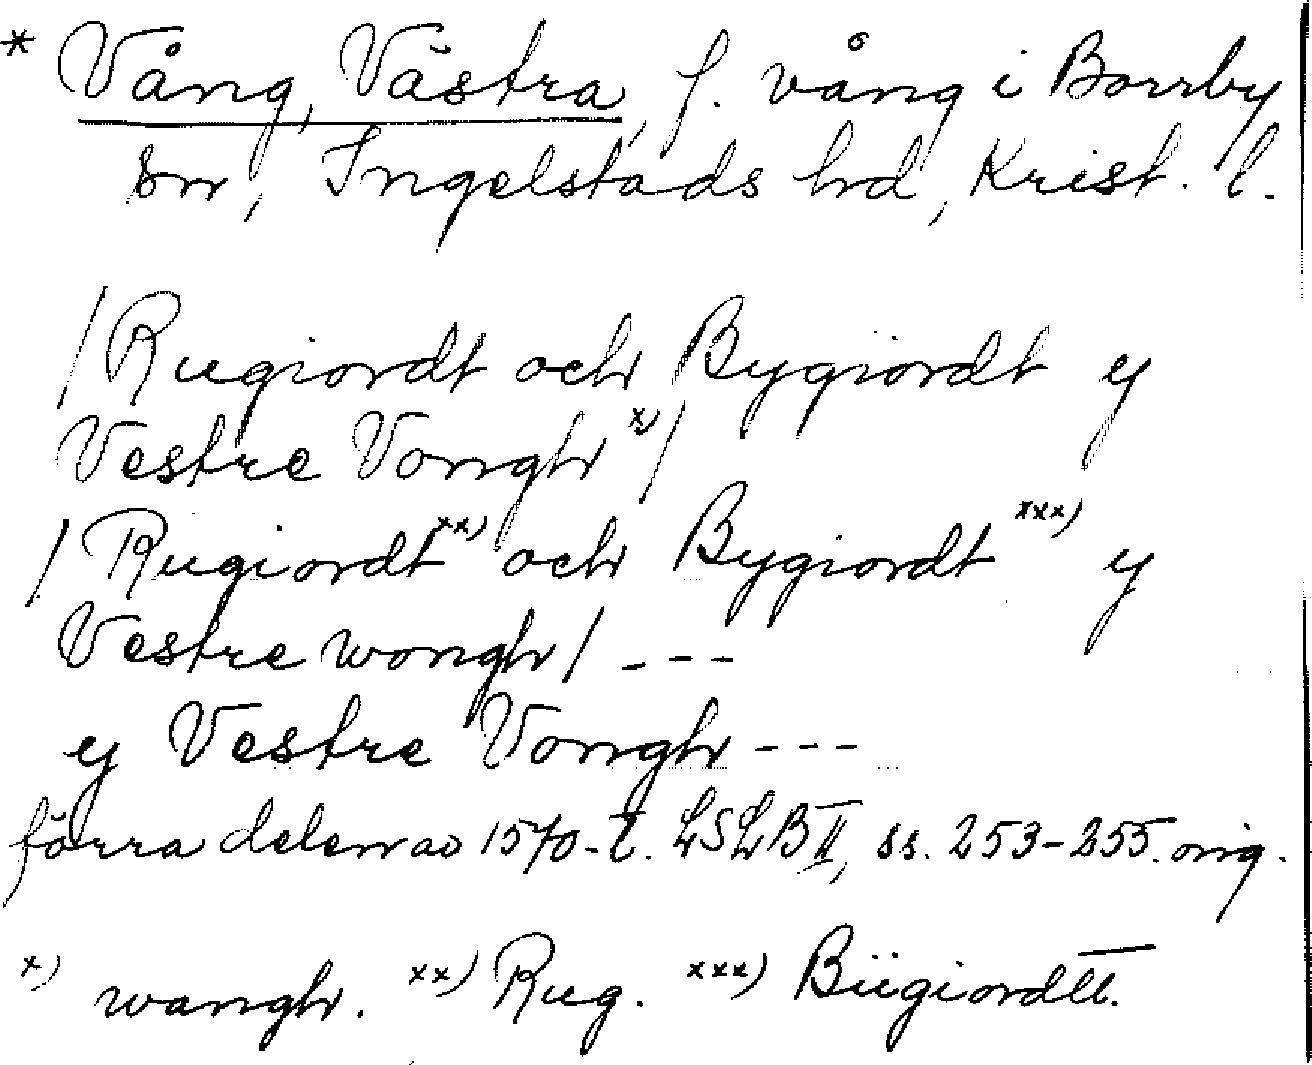 * Vång, Västra, f. vång i Borrby
sn, Ingelstads hd, Krist. l.
/Rugiordt och Bygiordt y
Vestre Vongh x)/
/Rugiordt xx) och Bygiordt xxx) y
Vestre wongh/ ---
y Vestre Vongh ---
förra delen av 1570-t. LSLB II, ss. 253-255. orig.
x) wangh. xx) Rug. xxx) Bügiordtt.